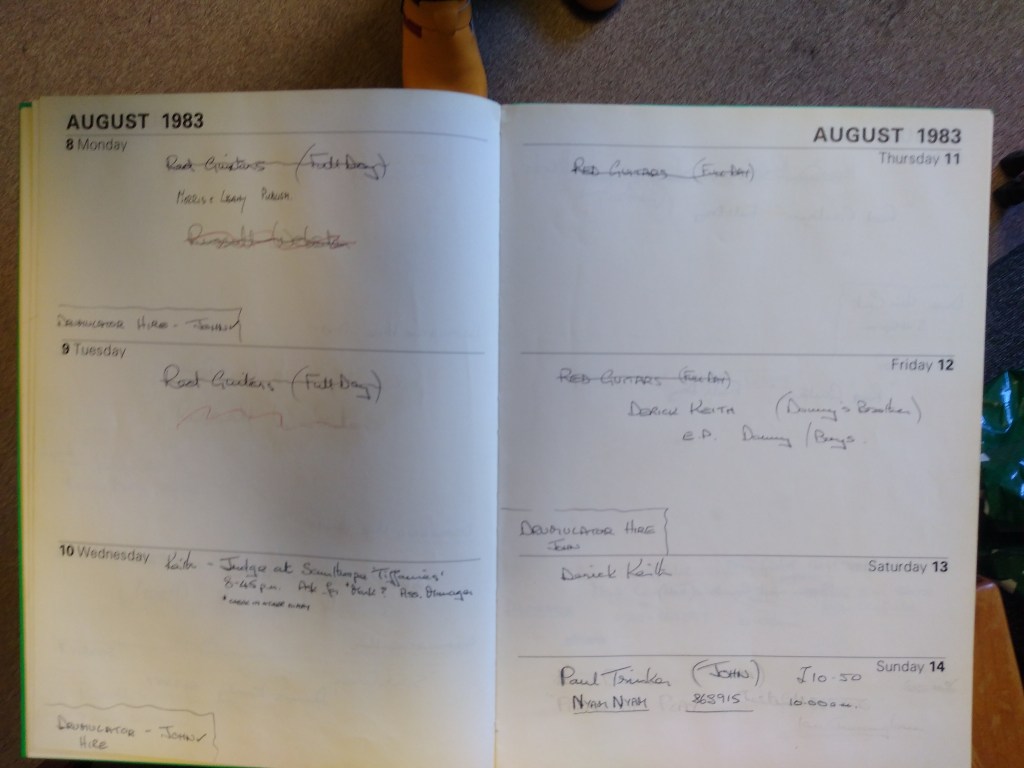 AUGUST 1983
8 Monday
Red Guitars (Full Day)
Morris & Leahy Publish.
DRUMULATOR HIRE - JOHN
9 Tuesday
Red Guitars (Full Day)
10 Wednesday
Keith - Judge at Scunthorpe 'Tiffanies'
8-45 p.m. Ask for Mark? Ass. Manager
DRUMULATOR - JOHN
HIRE
AUGUST 1983
Thursday 11
RED GUITARS (FULL DAY)
Friday 12
RED GUITARS (FULL DAY)
DERICK KEITH (Danny's Brother)
E.P. Danny /
DRUMULATOR HIRE
JOHN
Saturday 13
Derick Keith
Sunday 14
Paul (JOHN) £10.50
NYAM NYAM 863915 10.00 a.m.